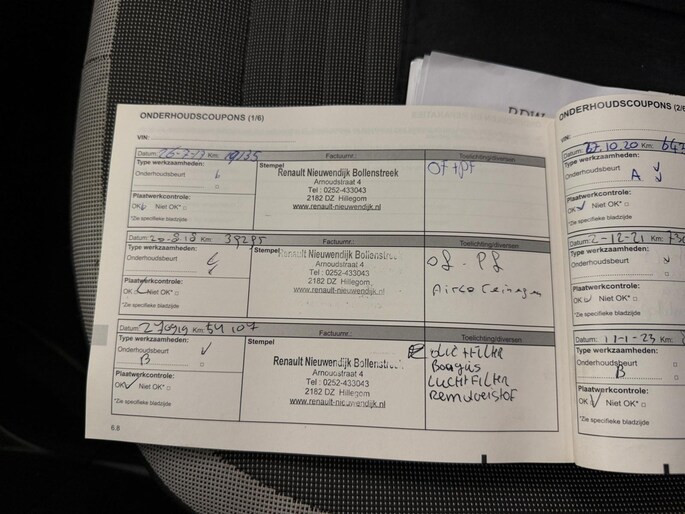 ONDERHOUDSCOUPONS (1/6)
VIN:
Datum: 26-7-17 Km:
Factuurnr.:
Toelichting/diversen
Type werkzaamheden:
Onderhoudsbeurt
Plaatwerkcontrole:
OK Niet OK*
*Zie specifieke bladzijde
Stempel
Renault Nieuwendijk Bollenstreek
Arnoudstraat 4
Tel : 0252-433043
2182 DZ Hillegom
www.renault-nieuwendijk.nl
of + pf
Datum: 20-8-18 Km: 39295
Factuurnr.:
Toelichting/diversen
Type werkzaamheden:
Onderhoudsbeurt
Plaatwerkcontrole:
OK Niet OK*
*Zie specifieke bladzijde
Stempel
Renault Nieuwendijk Bollenstreek
Arnoudstraat 4
Tel : 0252-433043
2182 DZ Hillegom
www.renault-nieuwendijk.nl
of - pf
Airco reinigen
Datum: 270919 Km: 54107
Factuurnr.:
Toelichting/diversen
Type werkzaamheden:
Onderhoudsbeurt
B
Plaatwerkcontrole:
OK Niet OK*
*Zie specifieke bladzijde
Stempel
Renault Nieuwendijk Bollenstreek
Arnoudstraat 4
Tel : 0252-433043
2182 DZ Hillegom
www.renault-nieuwendijk.nl
olie Filter
Bougies
LuchtFilter
Remvloeistof
6.8
ONDERHOUDSCOUPONS (2/6
VIN:
Datum: 27.10.20 Km:
Type werkzaamheden:
Onderhoudsbeurt
A
Plaatwerkcontrole:
OK Niet OK*
*Zie specifieke bladzijde
Datum: 2-12-21 Km:
Type werkzaamheden:
Onderhoudsbeurt
Plaatwerkcontrole:
OK Niet OK*
*Zie specifieke bladzijde
Datum: 11-1-23
Type werkzaamheden:
Onderhoudsbeurt
B
Plaatwerkcontrole:
OK Niet OK*
*Zie specifieke bladzijde